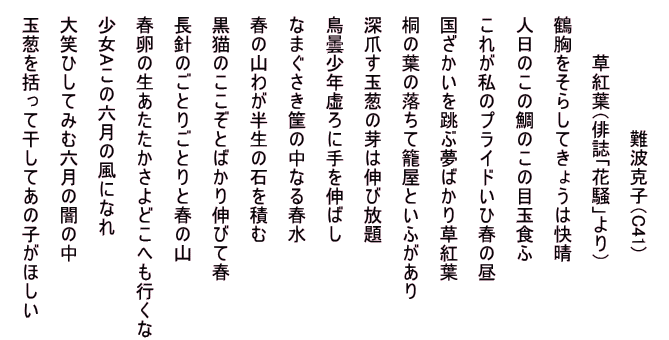 難波克子(C41)
草紅葉(俳誌「花騒」より)
鶴胸をそらしてきょうは快晴
人日のこの鯛のこの目玉食ふ
これが私のプライドいひ春の昼
国ざかいを跳ぶ夢ばかり草紅葉
桐の葉の落ちて籠屋といふがあり
深爪す玉葱の芽は伸び放題
鳥曇少年虚ろに手を伸ばし
なまぐさき筐の中なる春水
春の山わが半生の石を積む
黒猫のここぞとばかり伸びて春
長針のごとりごとりと春の山
春卵の生あたたかさよどこへも行くな
少女Aこの六月の風になれ
大笑ひしてみむ六月の闇の中
玉葱を括って干してあの子がほしい